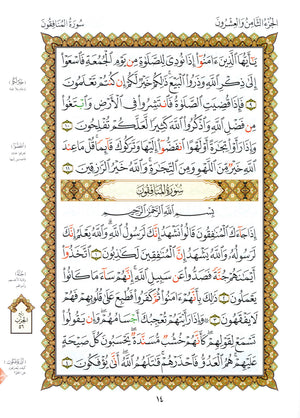 سورة المنافقون
الجزء الثامن والعشرون
يَٰٓأَيُّهَا ٱلَّذِينَ ءَامَنُوٓا۟ إِذَا نُودِىَ لِلصَّلَوٰةِ مِن يَوْمِ ٱلْجُمُعَةِ فَٱسْعَوْا۟
إِلَىٰ ذِكْرِ ٱللَّهِ وَذَرُوا۟ ٱلْبَيْعَ ذَٰلِكُمْ خَيْرٌ لَّكُمْ إِن كُنتُمْ تَعْلَمُونَ
٩ فَإِذَا قُضِيَتِ ٱلصَّلَوٰةُ فَٱنتَشِرُوا۟ فِى ٱلْأَرْضِ وَٱبْتَغُوا۟
مِن فَضْلِ ٱللَّهِ وَٱذْكُرُوا۟ ٱللَّهَ كَثِيرًا لَّعَلَّكُمْ تُفْلِحُونَ ١٠
وَإِذَا رَأَوْا۟ تِجَٰرَةً أَوْ لَهْوًا ٱنفَضُّوٓا۟ إِلَيْهَا وَتَرَكُوكَ قَآئِمًا قُلْ مَا عِندَ
ٱللَّهِ خَيْرٌ مِّنَ ٱللَّهْوِ وَمِنَ ٱلتِّجَٰرَةِ وَٱللَّهُ خَيْرُ ٱلرَّٰزِقِينَ ١١
سورة المنافقون
بِسْمِ ٱللَّهِ ٱلرَّحْمَٰنِ ٱلرَّحِيمِ
إِذَا جَآءَكَ ٱلْمُنَٰفِقُونَ قَالُوا۟ نَشْهَدُ إِنَّكَ لَرَسُولُ ٱللَّهِ وَٱللَّهُ يَعْلَمُ إِنَّكَ
لَرَسُولُهُۥ وَٱللَّهُ يَشْهَدُ إِنَّ ٱلْمُنَٰفِقِينَ لَكَٰذِبُونَ ١ ٱتَّخَذُوٓا۟
أَيْمَٰنَهُمْ جُنَّةً فَصَدُّوا۟ عَن سَبِيلِ ٱللَّهِ إِنَّهُمْ سَآءَ مَا كَانُوا۟
يَعْمَلُونَ ٢ ذَٰلِكَ بِأَنَّهُمْ ءَامَنُوا۟ ثُمَّ كَفَرُوا۟ فَطُبِعَ عَلَىٰ قُلُوبِهِمْ فَهُمْ
لَا يَفْقَهُونَ ٣ وَإِذَا رَأَيْتَهُمْ تُعْجِبُكَ أَجْسَامُهُمْ وَإِن يَقُولُوا۟
تَسْمَعْ لِقَوْلِهِمْ كَأَنَّهُمْ خُشُبٌ مُّسَنَّدَةٌ يَحْسَبُونَ كُلَّ صَيْحَةٍ
عَلَيْهِمْ هُمُ ٱلْعَدُوُّ فَٱحْذَرْهُمْ قَٰتَلَهُمُ ٱللَّهُ أَنَّىٰ يُؤْفَكُونَ ٤
١٤